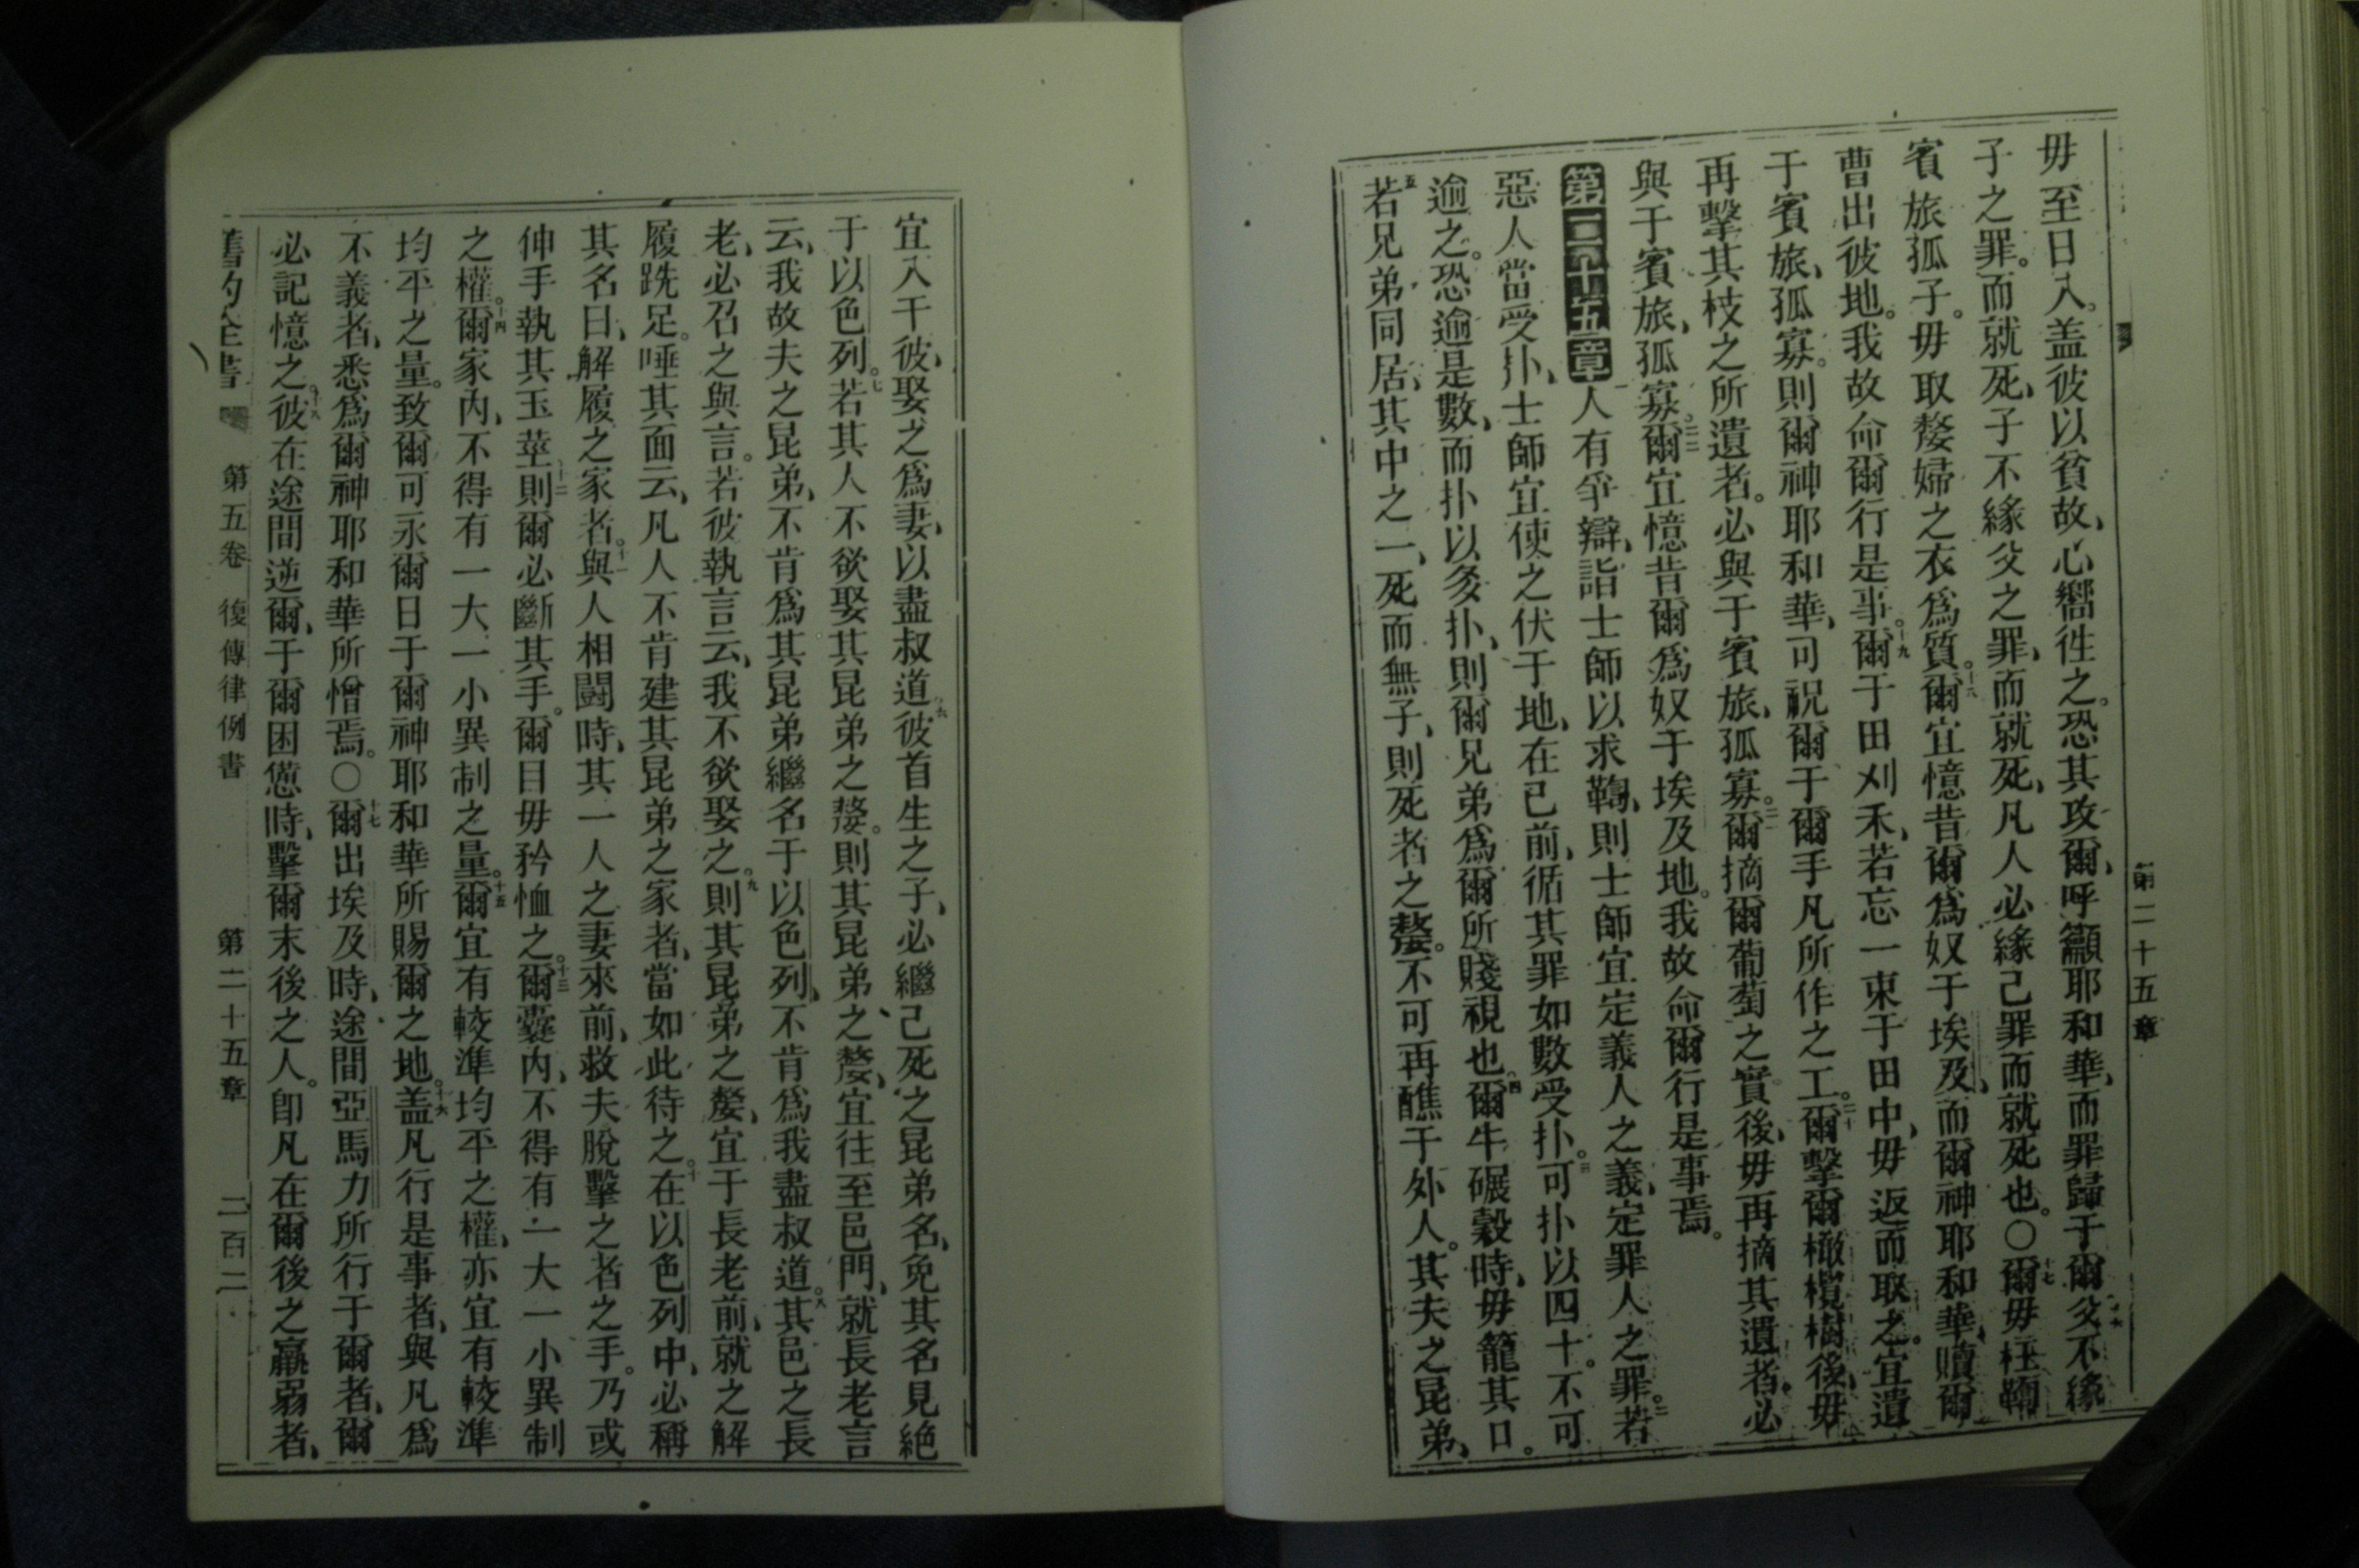 第二十五章
毋至日入。盖彼以貧故、心嚮徃之。恐其攻爾、呼籲耶和華、而罪歸于爾。十六父不緣
子之罪。而就死、子不緣父之罪、而就死、凡人必緣己罪而就死也。〇十七爾毋枉鞫
賓旅孤子。毋取嫠婦之衣爲質。十八爾宜憶昔爾爲奴于埃及、而爾神耶和華、贖爾
曹出彼地。我故命爾行是事。十九爾于田刈禾、若忘一束于田中、毋返而取之。宜遺
于賓旅、孤寡。則爾神耶和華、可祝爾于爾手凡所作之工。二十爾擊爾橄欖樹後、毋
再擊其枝之所遺者。必與于賓旅、孤寡。二一爾摘爾葡萄之實後、毋再摘其遺者、必
與于賓旅、孤寡。二二爾宜憶昔爾爲奴于埃及地。我故命爾行是事焉。
第二十五章 一人有爭辯、詣士師以求鞫、則士師宜定義人之義、定罪人之罪。二若
惡人當受扑、士師宜使之伏于地、在己前、循其罪如數受扑。三可扑以四十。不可
逾之。恐逾是數、而扑以多扑、則爾兄弟爲爾所賤視也。四爾牛碾穀時、毋籠其口。
五若兄弟同居、其中之一、死而無子、則死者之嫠。不可再醮于外人。其夫之昆弟、
宜入于彼、娶之爲妻、以盡叔道。六彼首生之子、必繼己死之昆弟名、免其名見絶
于以色列。七若其人不欲娶其昆弟之嫠。則其昆弟之嫠、宜往至邑門、就長老言
云、我故夫之昆弟、不肯爲其昆弟繼名于以色列、不肯爲我盡叔道。八其邑之長
老、必召之與言。若彼執言云、我不欲娶之。九則其昆弟之嫠、宜于長老前、就之解
履跣足。唾其面云、凡人不肯建其昆弟之家者、當如此待之。十在以色列中、必稱
其名曰、解履之家者。十一與人相鬬時、其一人之妻來前、救夫脫擊之者之手。乃或
伸手執其玉莖、十二則爾必斷其手。爾目毋矜恤之。十三爾囊內、不得有一大一小異制
之權。十四爾家內、不得有一大一小異制之量。十五爾宜有較準均平之權、亦宜有較準
均平之量。致爾可永爾日于爾神耶和華所賜爾之地。十六盖凡行是事者、與凡爲
不義者、悉爲爾神耶和華所憎焉。〇十七爾出埃及時、途間亞馬力所行于爾者、爾
必記憶之。十八彼在途間逆爾、于爾困憊時、擊爾末後之人。卽凡在爾後之羸弱者、
舊約全書 第五卷 復傳律例書 第二十五章 二百二